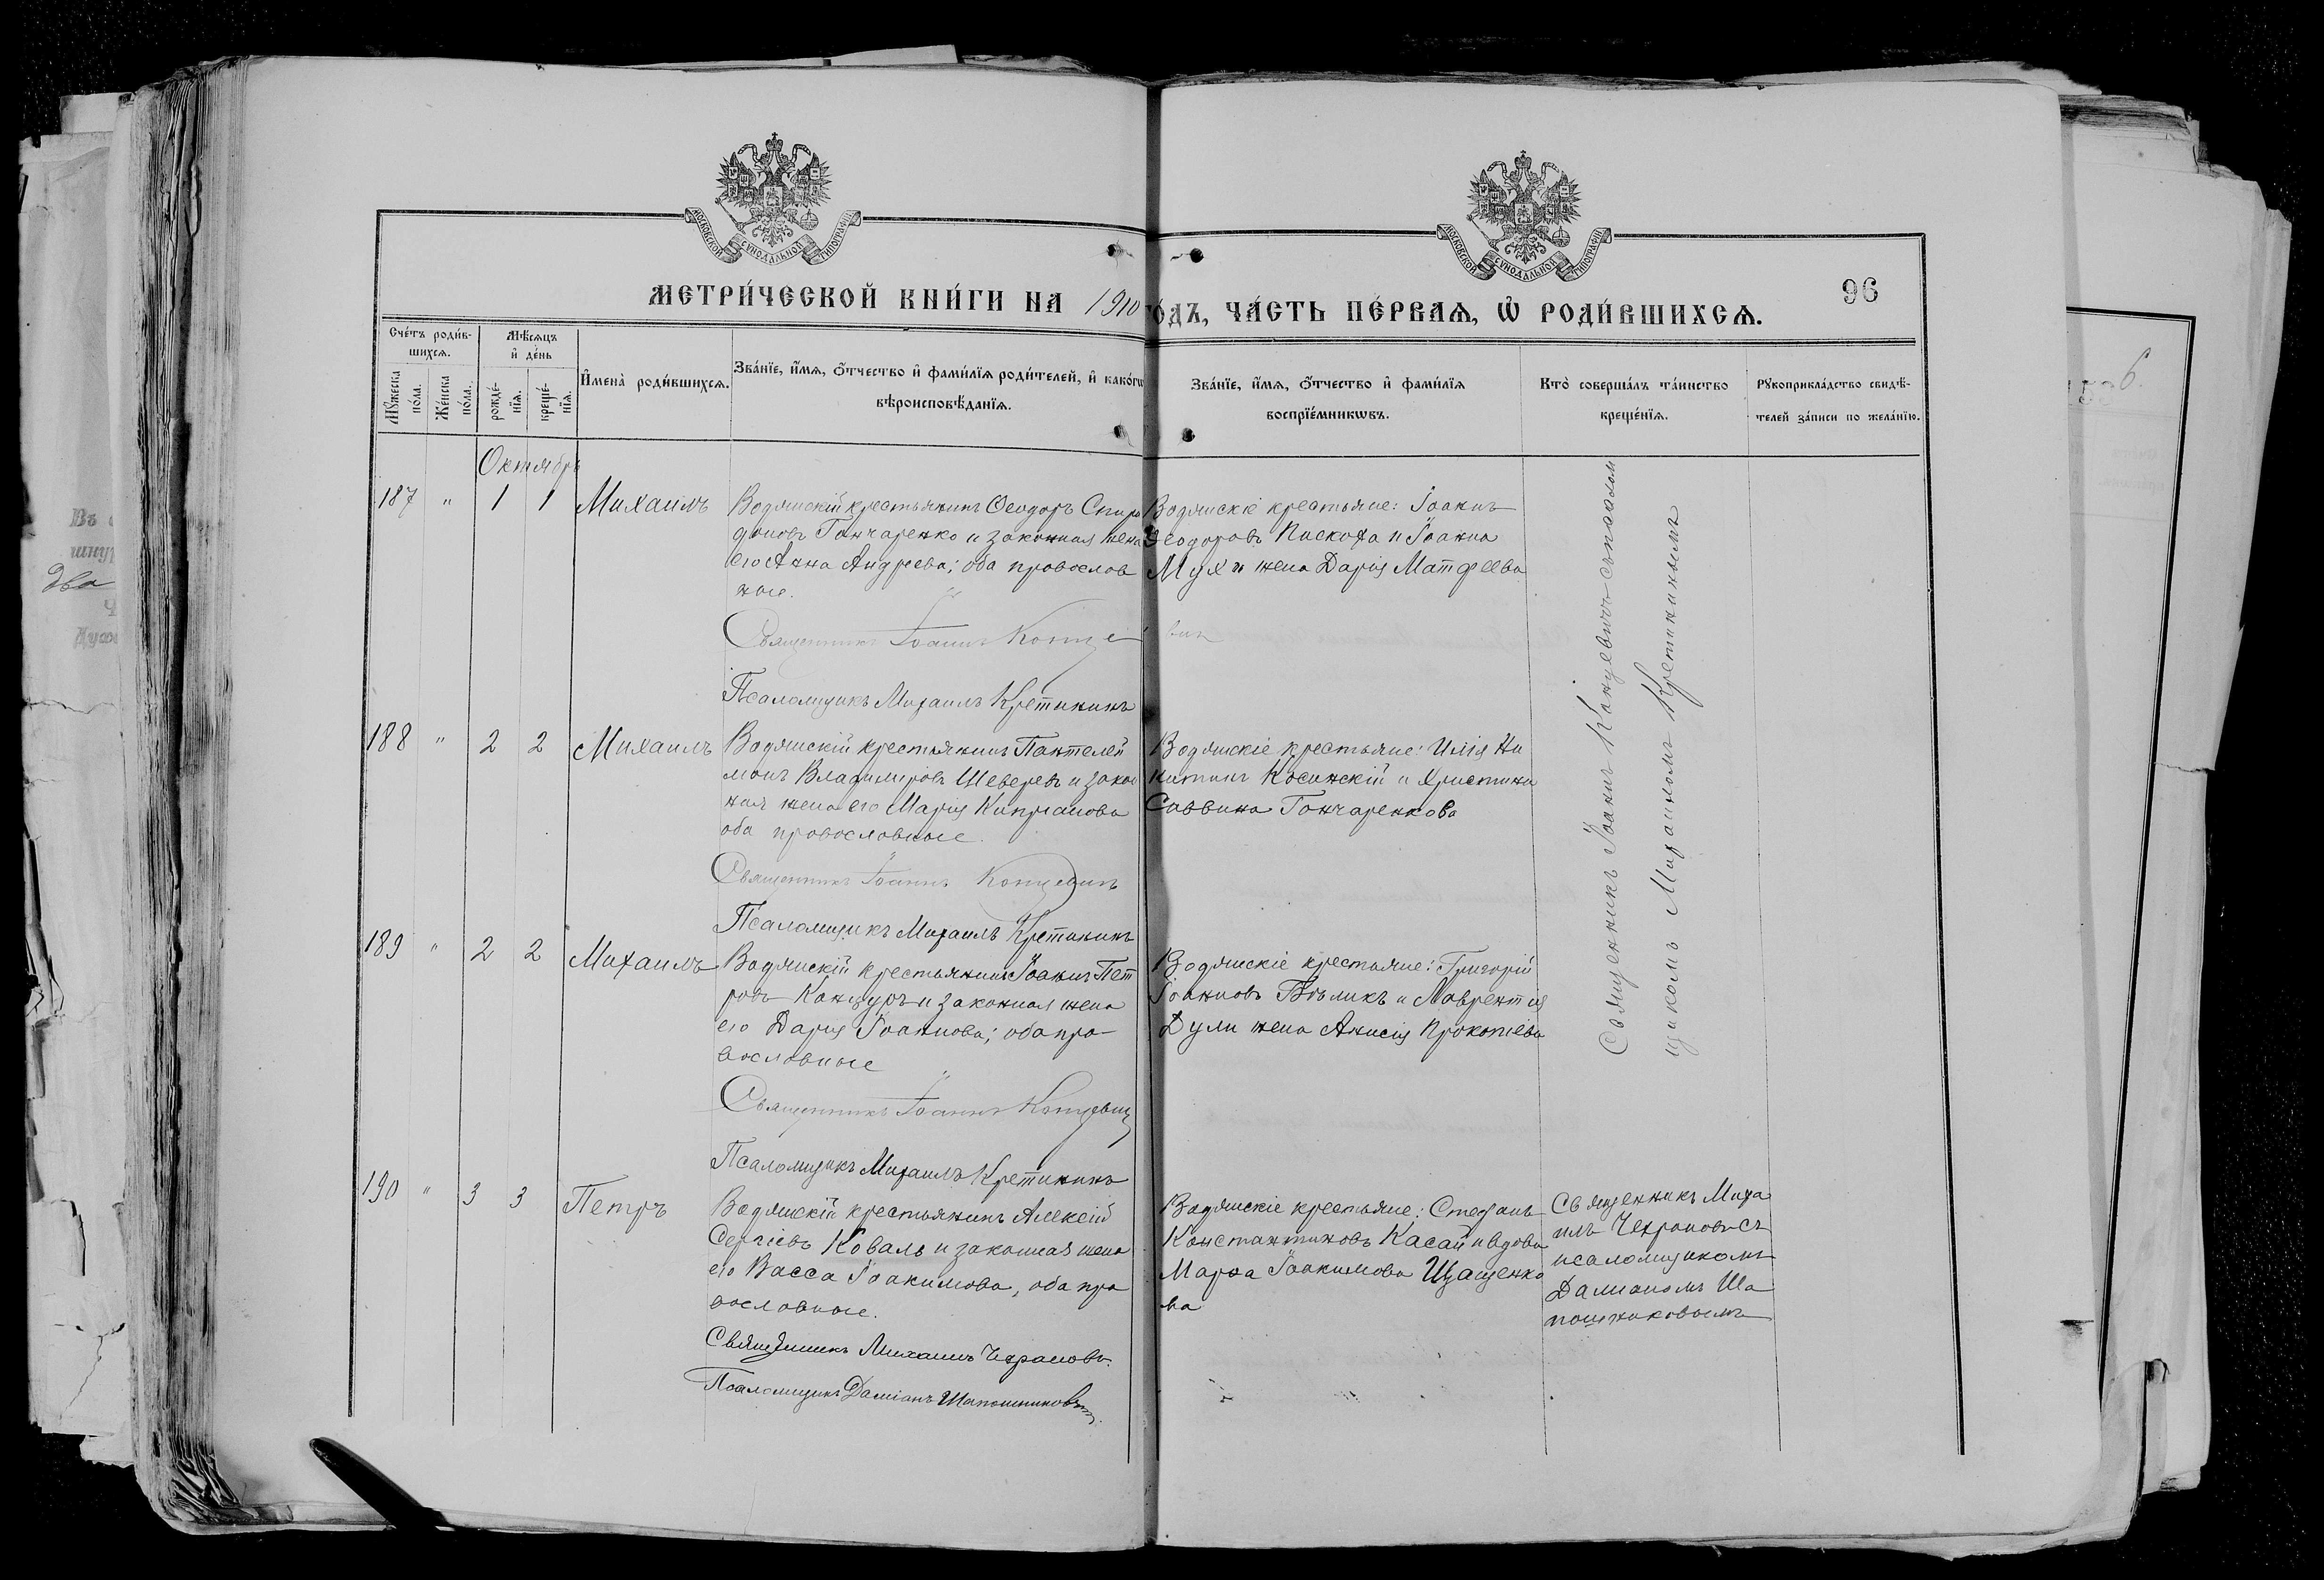 МОСКОВСКОЙ СУНОДАЛЬНОЙ ТИПОГРАФІИ
МОСКОВСКОЙ СУНОДАЛЬНОЙ ТИПОГРАФІИ
МЕТРИ́ЧЕСКОЙ КНИ́ГИ НА 1910 ГО́ДЪ, ЧА́СТЬ ПЕ́РВАѦ, Ѡ РОДИ́ВШИХСѦ.
96
Сче́тъ роди́в-
шихсѧ.
Мꙋ́жеска
по́ла.
Же́нска
по́ла.
Мѣ́сѧцъ
и҆ де́нь
рожде́-
нїѧ.
креще́-
нїѧ.
И҆мена̀ роди́вшихсѧ.
Зва́нїе, и҆́мѧ, ѻ҆́тчество и҆ фами́лїѧ роди́телей, и҆ како́гѡ
вѣроисповѣ́данїѧ.
Зва́нїе, и҆́мѧ, ѻ҆́тчество и҆ фами́лїѧ
воспрїе́мникѡвъ.
Кто̀ соверша́лъ та́инство
креще́нїѧ.
Рꙋкоприкла́дство свидѣ́-
телей за́писи по жела́нїю.
Октябрь
187 " 1 1 Михаилъ
Водянскій крестьянинъ Ѳеодоръ Спири
доновъ Гончаренко и законная жена
его Анна Андреева; оба православ
ные.
Священникъ Іоаннъ Концевич
Псаломщикъ Михаилъ Кретининъ
Водянскіе крестьяне: Іоаннъ
Ѳеодоровъ Пискоха и Іоанна
Мухи жена Дарія Матфеева
Священникъ Іоаннъ Концевичъ съ псалом
щикомъ Михаиломъ Кретининымъ
188 " 2 2 Михаилъ
Водянскій крестьянинъ Пантелей
монъ Владиміровъ Шеверев и закон
ная жена его Марія Кипріанова
оба православные.
Священникъ Іоаннъ Концевичъ
Псаломщикъ Михаилъ Кретининъ
Водянскіе крестьяне: Илія Ни
китинъ Косинскій и Христина
Саввина Гончаренкова
189 " 2 2 Михаилъ
Водянскій крестьянинъ Іоаннъ Пет
ровъ и законная жена
его Дарія Іоаннова; оба пра-
вославные
Священникъ Іоаннъ Концевич
Псаломщикъ Михаилъ Кретининъ
Водянскіе крестьяне: Григорій
Іоанновъ Бѣликъ и Лаврентія
Дули жена Анисія Прокопіева
190 " 3 3 Петръ
Водянскій крестьянинъ Алексій
Сергіевъ Коваль и законная жена
его Васса Іоакимова, оба пра
вославные.
Священникъ Михаилъ Чехрановъ.
Псаломщикъ Даміанъ Шапошниковъ
Водянскіе крестьяне: Стефанъ
Константиновъ Касай и вдова
Марѳа Іоакимова Щащенко
ва
Священникъ Миха
илъ Чехрановъ съ
псаломщикомъ
Даміаномъ Ша
пошниковымъ